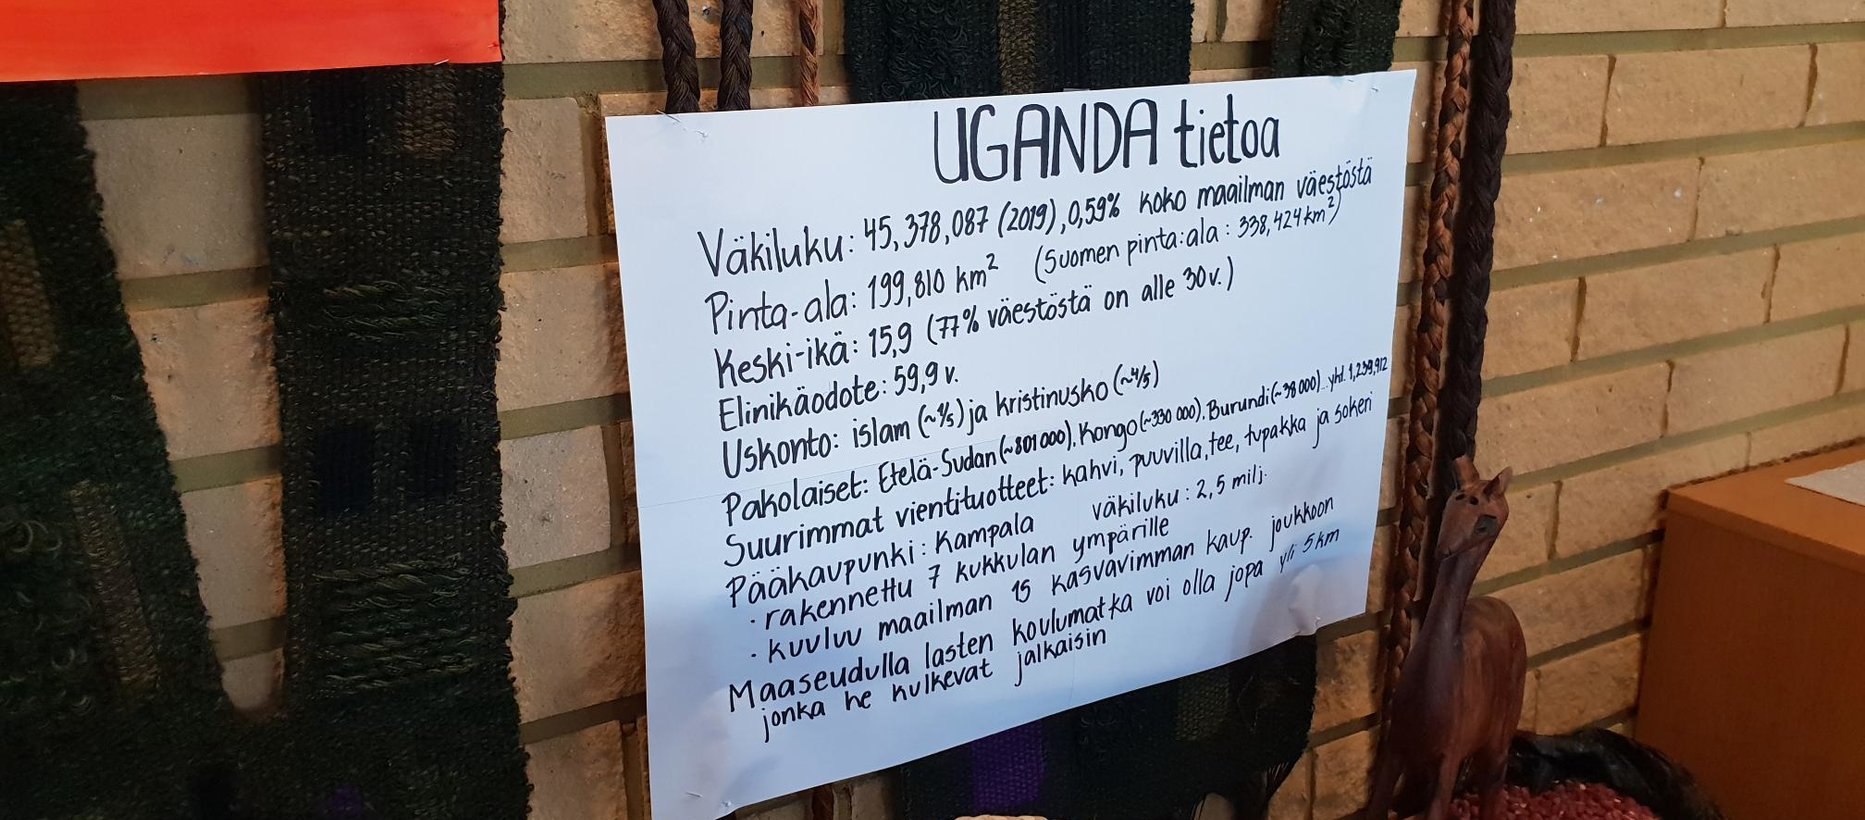 UGANDA tietoa
Väkiluku: 45,378,087 (2019), 0,59% koko maailman väestöstä
Pinta-ala: 199,810 km² (Suomen pinta:ala: 338,424 km²)
Keski-ikä: 15,9 (77% väestöstä on alle 30v.)
Elinikäodote: 59,9 v.
Uskonto: islam (~1/5) ja kristinusko (~4/5)
Pakolaiset: Etelä-Sudan (~801 000), Kongo (~330 000), Burundi (~38 000).. yht. 1,239,912
Suurimmat vientituotteet: kahvi, puuvilla, tee, tupakka ja sokeri
Pääkaupunki: Kampala väkiluku: 2,5 milj.
· rakennettu 7 kukkulan ympärille
· kuuluu maailman 15 kasvavimman kaup. joukkoon
Maaseudulla lasten koulumatka voi olla jopa yli 5 km
jonka he kulkevat jalkaisin